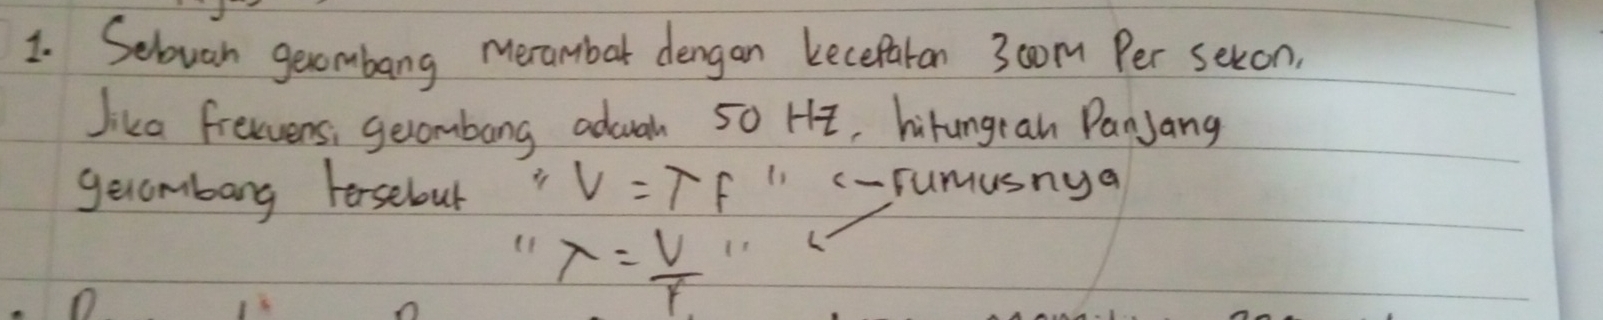 1. Sebuah gelombang merambat dengan kecepatan 300 m Per sekon.
Jika frekuensi gelombang adalah 50 Hz, hitunglah Panjang
gelombang tersebut " V = λ f " <- rumusnya
" λ = V/f "